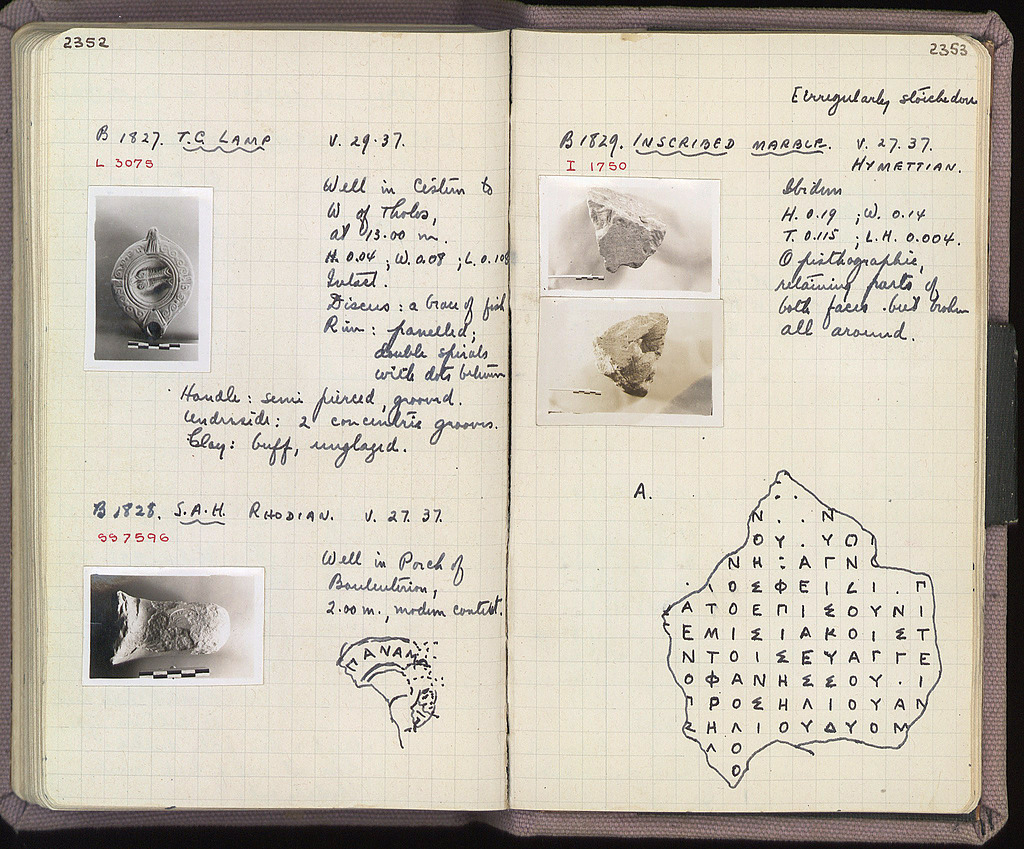 2352
B 1827. T.C. LAMP V. 29.37.
L 3075
Well in Cistern to
W of Tholos,
at 13.00 m.
H. 0.04 ; W. 0.08 ; L. 0.108
Intact.
Discus: a brace of fish
Rim: panelled;
double spirals
with dots between
Handle: semi pierced, grooved.
Underside: 2 concentric grooves.
Clay: buff, unglazed.
B 1828. S.A.H. RHODIAN. V. 27. 37.
SS 7596
Well in Porch of
Bouleuterion,
2.00 m., modern context.
ΠΑΝΑΜ
2353
irregularly stoichedon
B 1829. INSCRIBED MARBLE. V. 27. 37.
I 1750 HYMETTIAN.
Ibidem
H. 0.19 ; W. 0.14
T. 0.115 ; L.H. 0.004.
Opisthographic,
retaining parts of
both faces but broken
all around.
A.
Ν . . Ν
Ο Υ . Υ Ο Ι
Ν Η : Α Γ Ν
Ο Σ Φ Ε Ι Γ
Α Τ Ο Ε Π Ι Σ Ο Υ Ν Ι
Ε Μ Ι Σ Ι Α Κ Ο Ι Σ Τ
Ν Τ Ο Ι Σ Ε Υ Α Γ Γ Ε
Ο Φ Α Ν Η Σ Σ Ο Υ . Ι
Γ Ρ Ο Σ Η Λ Ι Ο Υ Α Ν
Σ Η Λ Ι Ο Υ Δ Υ Ο Μ
Λ Ο
Ο